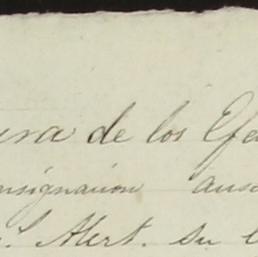 ura de los Efe
nsignacion ausa
Mert. su